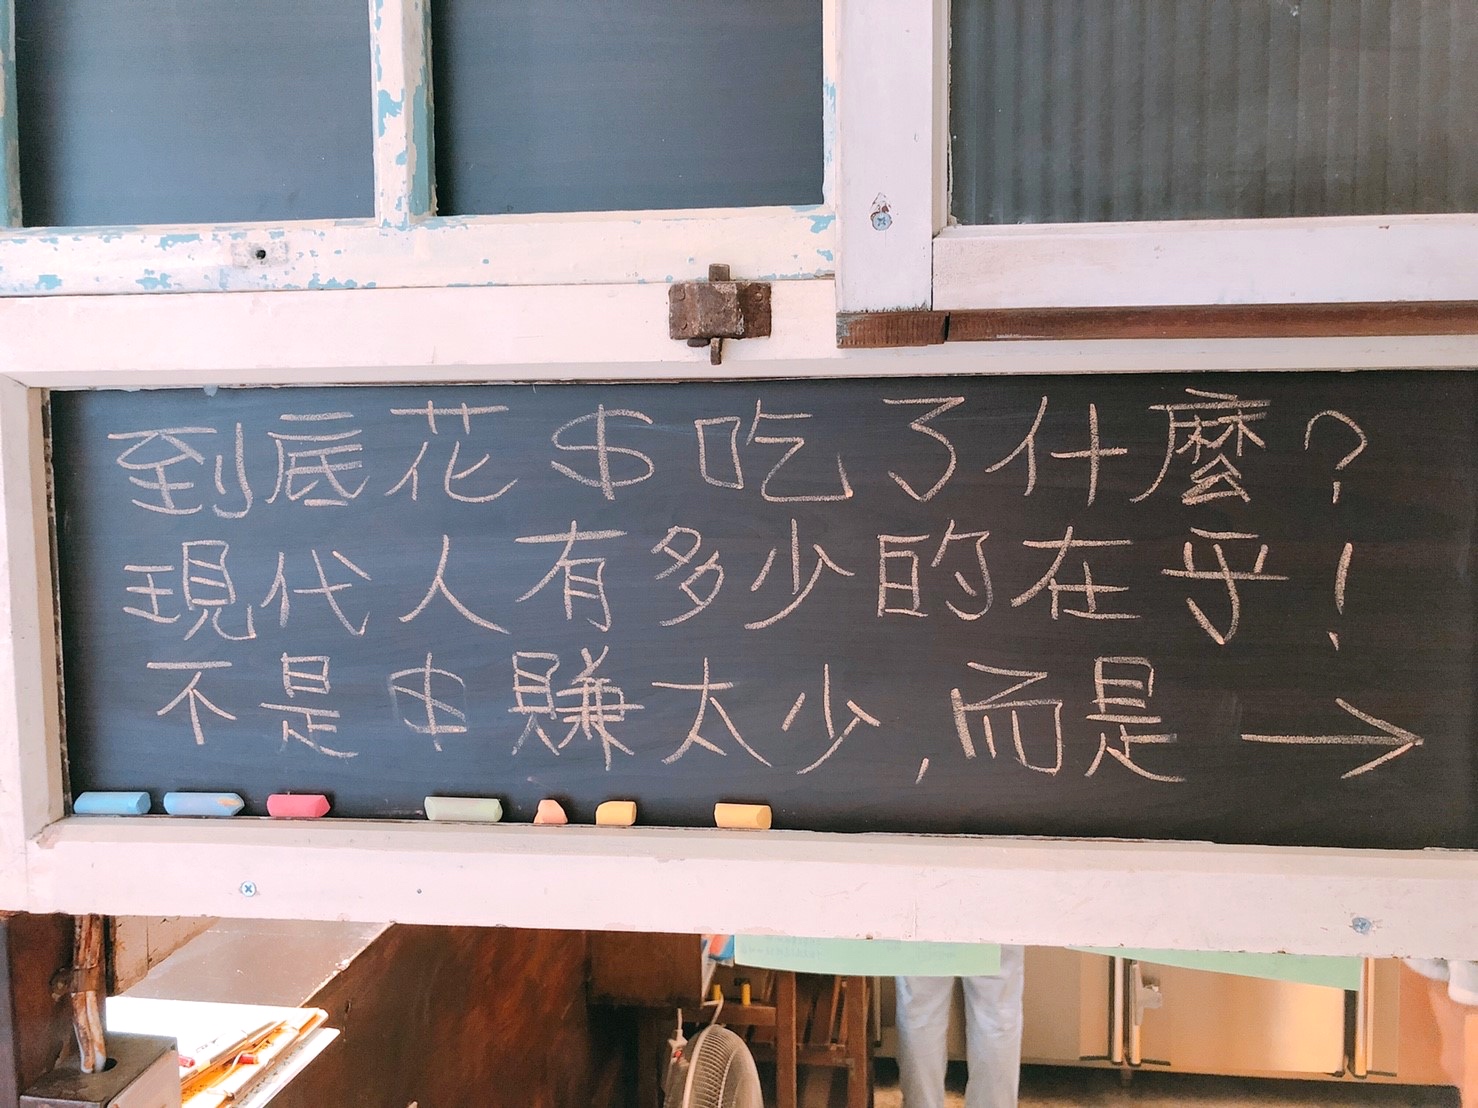 到底花$吃了什麼？
現代人有多少的在乎！
不是$賺太少，而是→